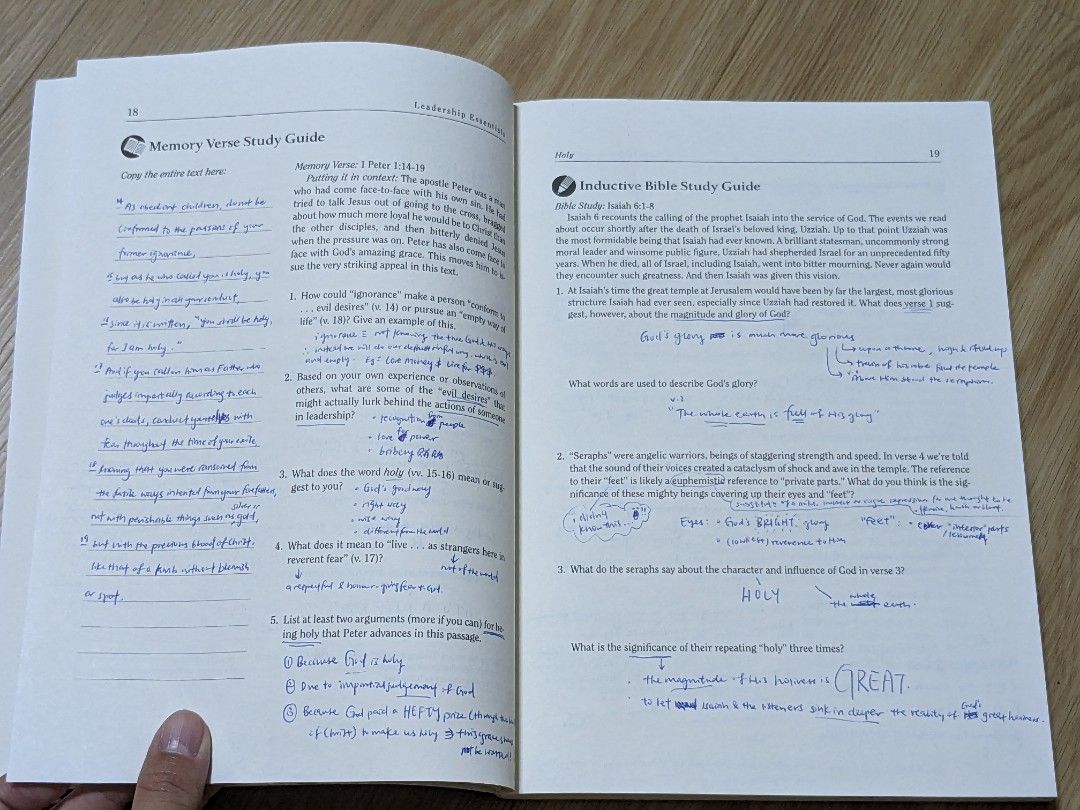 18
Leadership Essentials
Memory Verse Study Guide
Copy the entire text here:
14 As obedient children, do not be
conformed to the passions of your
former ignorance,
15 but as he who called you is holy, you
also be holy in all your conduct,
16 since it is written, "you shall be holy,
for I am holy."
17 And if you call on him as Father who
judges impartially according to each
one's deeds, conduct yourselves with
fear throughout the time of your exile,
18 knowing that you were ransomed from
the futile ways inherited from your forefathers,
not with perishable things such as silver or gold,
19 but with the precious blood of Christ,
like that of a lamb without blemish
or spot.
Memory Verse: 1 Peter 1:14-19
Putting it in context: The apostle Peter was a man
who had come face-to-face with his own sin. He had
tried to talk Jesus out of going to the cross, bragged
about how much more loyal he would be to Christ than
the other disciples, and then bitterly denied Jesus
when the pressure was on. Peter has also come face to
face with God's amazing grace. This moves him to is-
sue the very striking appeal in this text.
1. How could "ignorance" make a person "conform to
. . . evil desires" (v. 14) or pursue an "empty way of
life" (v. 18)? Give an example of this.
ignorance = not knowing the true God & His ways
∴ instead we will do our default sinful way, which is
and empty. Eg: Love money & live for
2. Based on your own experience or observations of
others, what are some of the "evil desires" that
might actually lurk behind the actions of someone
in leadership?
• recognition from people
• love for power
• bribery
3. What does the word holy (vv. 15-16) mean or sug-
gest to you?
• God's good way
• right way
• wise way
• different from the world
4. What does it mean to "live . . . as strangers here in
reverent fear" (v. 17)?
not of the world
a respectful & honour-giving fear to God.
5. List at least two arguments (more if you can) for be-
ing holy that Peter advances in this passage.
① Because God is holy
② Due to impartial judgement of God
③ Because God paid a HEFTY prize (through the
of Christ) to make us holy ⇒ this grace
not be wasted!
Holy
19
Inductive Bible Study Guide
Bible Study: Isaiah 6:1-8
Isaiah 6 recounts the calling of the prophet Isaiah into the service of God. The events we read
about occur shortly after the death of Israel's beloved king, Uzziah. Up to that point Uzziah was
the most formidable being that Isaiah had ever known. A brilliant statesman, uncommonly strong
moral leader and winsome public figure, Uzziah had shepherded Israel for an unprecedented fifty
years. When he died, all of Israel, including Isaiah, went into bitter mourning. Never again would
they encounter such greatness. And then Isaiah was given this vision.
1. At Isaiah's time the great temple at Jerusalem would have been by far the largest, most glorious
structure Isaiah had ever seen, especially since Uzziah had restored it. What does verse 1 sug-
gest, however, about the magnitude and glory of God?
God's glory is much more glorious
upon a throne, high & lifted up
train of his robe filled the temple
v.2 Above Him stood the seraphim.
What words are used to describe God's glory?
v.3
"The whole earth is full of His glory"
2. "Seraphs" were angelic warriors, beings of staggering strength and speed. In verse 4 we're told
that the sound of their voices created a cataclysm of shock and awe in the temple. The reference
to their "feet" is likely a euphemistic reference to "private parts." What do you think is the sig-
nificance of these mighty beings covering up their eyes and "feet"?
substitute of a mild, indirect or vague expression for one thought to be
offensive, harsh or blunt.
i didn't
know this...
Eyes: • God's BRIGHT glory
• (lowliest) reverence to Him
"Feet": • cover "inferior" parts
3. What do the seraphs say about the character and influence of God in verse 3?
HOLY
the whole earth.
What is the significance of their repeating "holy" three times?
• the magnitude of His holiness is GREAT.
• to let Isaiah & the listeners sink in deeper the reality of God's great holiness.